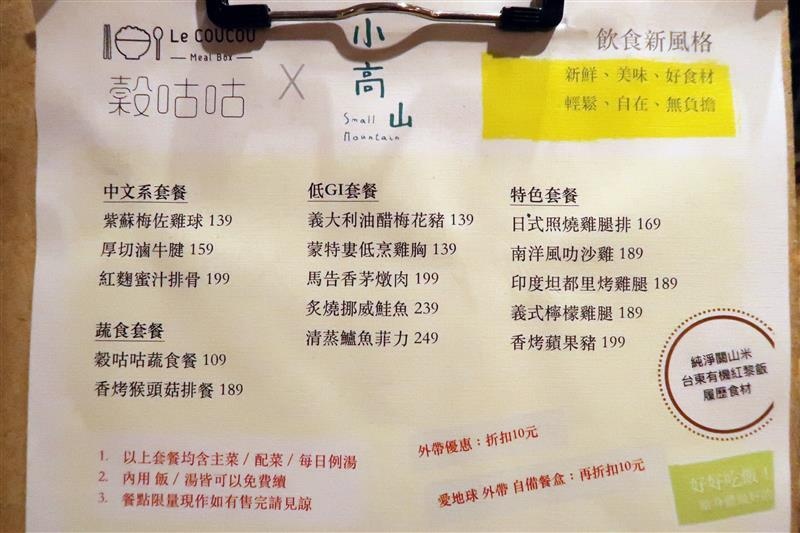 Le COUCOU
Meal Box
穀咕咕
X
小高山
Small
Mountain
飲食新風格
新鮮、美味、好食材
輕鬆、自在、無負擔
中文系套餐
紫蘇梅佐雞球 139
厚切滷牛腱 159
紅麴蜜汁排骨 199
蔬食套餐
穀咕咕蔬食餐 109
香烤猴頭菇排餐 189
低GI套餐
義大利油醋梅花豬 139
蒙特婁低烹雞胸 139
馬告香茅燉肉 199
炙燒挪威鮭魚 239
清蒸鱸魚菲力 249
特色套餐
日式照燒雞腿排 169
南洋風叻沙雞 189
印度坦都里烤雞腿 189
義式檸檬雞腿 189
香烤蘋果豬 199
純淨關山米
台東有機紅藜飯
履歷食材
1. 以上套餐均含主菜 / 配菜 / 每日例湯
2. 內用 飯 / 湯皆可以免費續
3. 餐點限量現作如有售完請見諒
外帶優惠：折扣10元
愛地球 外帶 自備餐盒：再折扣10元
好好吃飯！